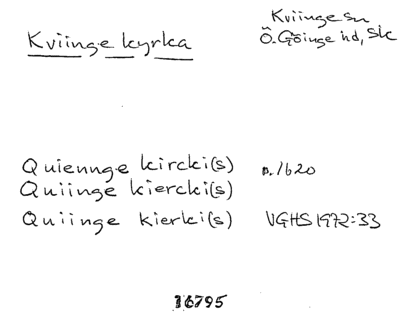 Kviinge kyrka
Kviinge sn
Ö. Göinge hd, Sk
Quiennge kircki(s) o. 1620
Quiinge kiercki(s)
Quiinge kierki(s) VGHS 1972:33
16795